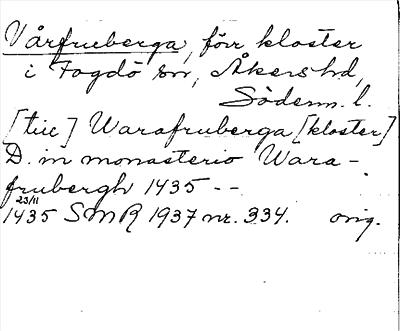 Vårfruberga, förr kloster
i Fogdö sn, Åkers hd,
Söderm. l.
[till] Warafruberga [kloster]
D. in monasterio Wara-
frubergh 1435 --
23/11
1435 SMR 1937 nr. 334. orig.